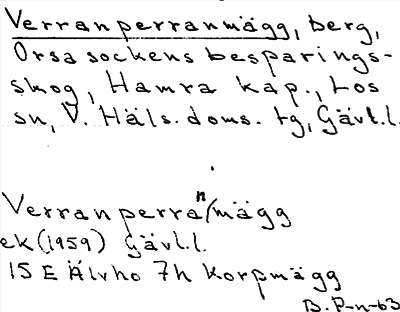 Verranperranmägg, berg,
Orsa sockens besparings-
skog, Hamra kap., Los
sn, V. Häls. doms. tg, Gävl.l.
Verranperran/mägg
ek (1959) Gävl.l.
15 E Älvho 7h Korpmägg
B. P-n-63